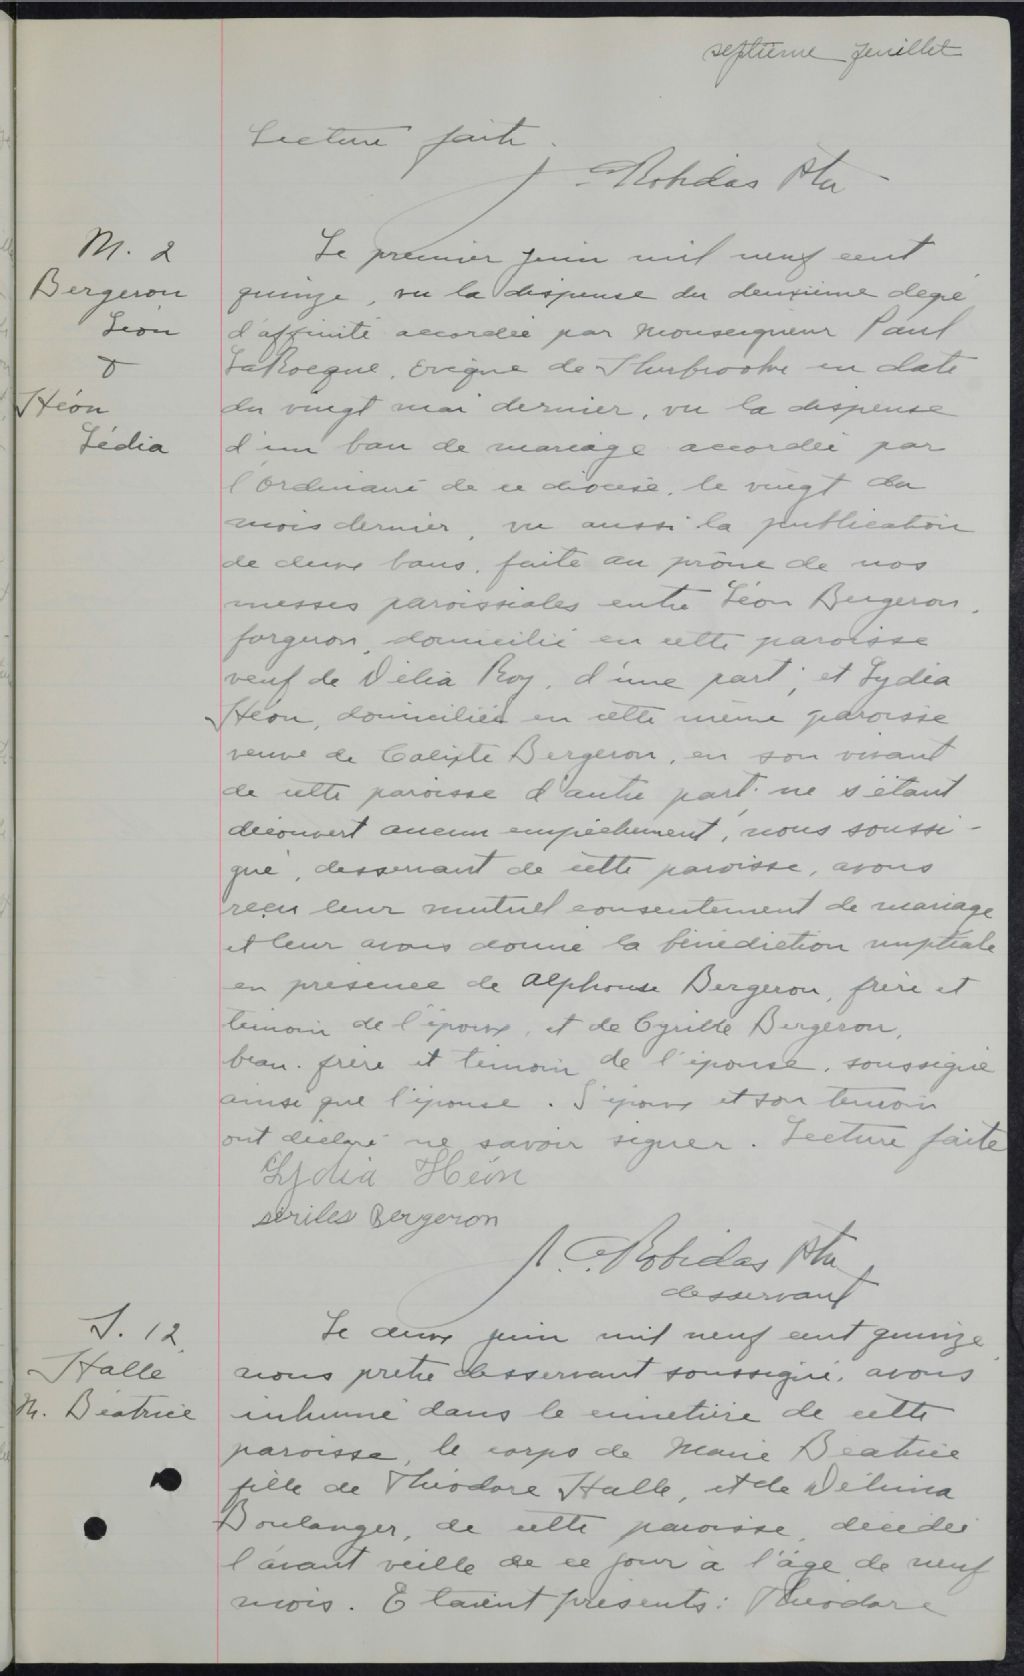 septième feuillet
Lecture faite.
J. C. Robidas Ptre
M. 2
Bergeron
Léon
&
Héon
Lédia
Le premier juin mil neuf cent
quinze, vu la dispense du deuxième degré
d'affinité accordée par Monseigneur Paul
LaRocque, évêque de Sherbrooke en date
du vingt mai dernier, vu la dispense
d'un ban de mariage accordée par
l'Ordinaire de ce diocèse, le vingt du
mois dernier, vu aussi la publication
de deux bans, faite au prône de nos
messes paroissiales entre Léon Bergeron,
forgeron, domicilié en cette paroisse
veuf de Délia Roy, d'une part; et Lydia
Héon, domiciliée en cette même paroisse
veuve de Calixte Bergeron, en son vivant
de cette paroisse d'autre part; ne s'étant
découvert aucun empêchement, nous soussi-
gné, desservant de cette paroisse, avons
reçu leur mutuel consentement de mariage
et leur avons donné la bénédiction nuptiale
en présence de Alphonse Bergeron, frère et
témoin de l'époux, et de Cyrille Bergeron,
beau-frère et témoin de l'épouse, soussigné
ainsi que l'épouse. L'époux et son témoin
ont déclaré ne savoir signer. Lecture faite
Lydia Héon
siriles Bergeron
J. C. Robidas Ptre
desservant
S. 12
Halle
M. Béatrice
Le deux juin mil neuf cent quinze,
nous prêtre desservant soussigné, avons
inhumé dans le cimetière de cette
paroisse, le corps de Marie Béatrice
fille de Théodore Halle, et de Délima
Boulanger, de cette paroisse, décédée
l'avant veille de ce jour à l'âge de neuf
mois. Etaient présents: Théodore